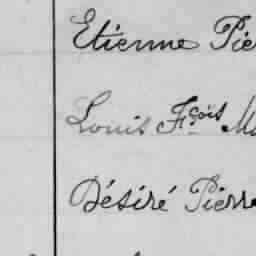 Etienne Pie
Louis Fçois Ma
Désiré Pierre